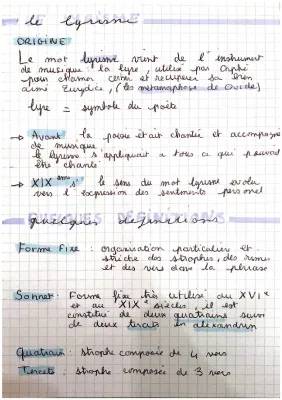 le lyrisme
ORIGINE
Le mot lyrisme vient de l'instrument
de musique la lyre, utilisé par Orphé
pour charmer et recuperer sa bien
aimé Eurydice, (les métamorphose de Ovide)
lyre = symbole du poète
→ Avant la poésie etait chantée et accompagné
de musique
le lyrisme s'appliquait a tous ce qui pouvait
être chanté
→ XIX ème s' le sens du mot lyrisme evolu
vers l'expression des sentiments personel
quelques définitions
Forme Fixe : organisation particulière et
stricte des strophes, des rimes
et des vers dans la phrase
Sonnet : Forme fixe très utilisé au XVIe
et au XIXe siècles, il est
constitué de deux quatrains suivi
de deux tercets en alexandrin
Quatrain : strophe composée de 4 vers
Tercets : strophe composée de 3 vers